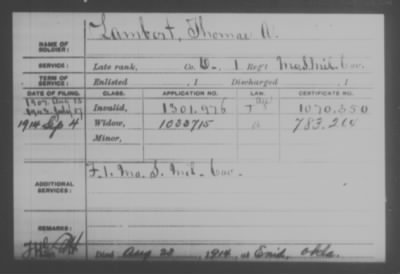 Lambert, Thomas A.
NAME OF SOLDIER:
SERVICE: Late rank, Co. D, 1 Reg't Mo. S. Mil. Cav.
TERM OF SERVICE: Enlisted , 1 Discharged , 1
DATE OF FILING. CLASS. APPLICATION NO. LAW. CERTIFICATE NO.
Invalid, 1301.976 1070.350
1914 Sep 4 Widow, 1033715 783.204
Minor,
ADDITIONAL SERVICES: F. 1. Mo. S. Mil. Cav.
REMARKS:
Died Aug 23, 1914, at Enid, Okla.